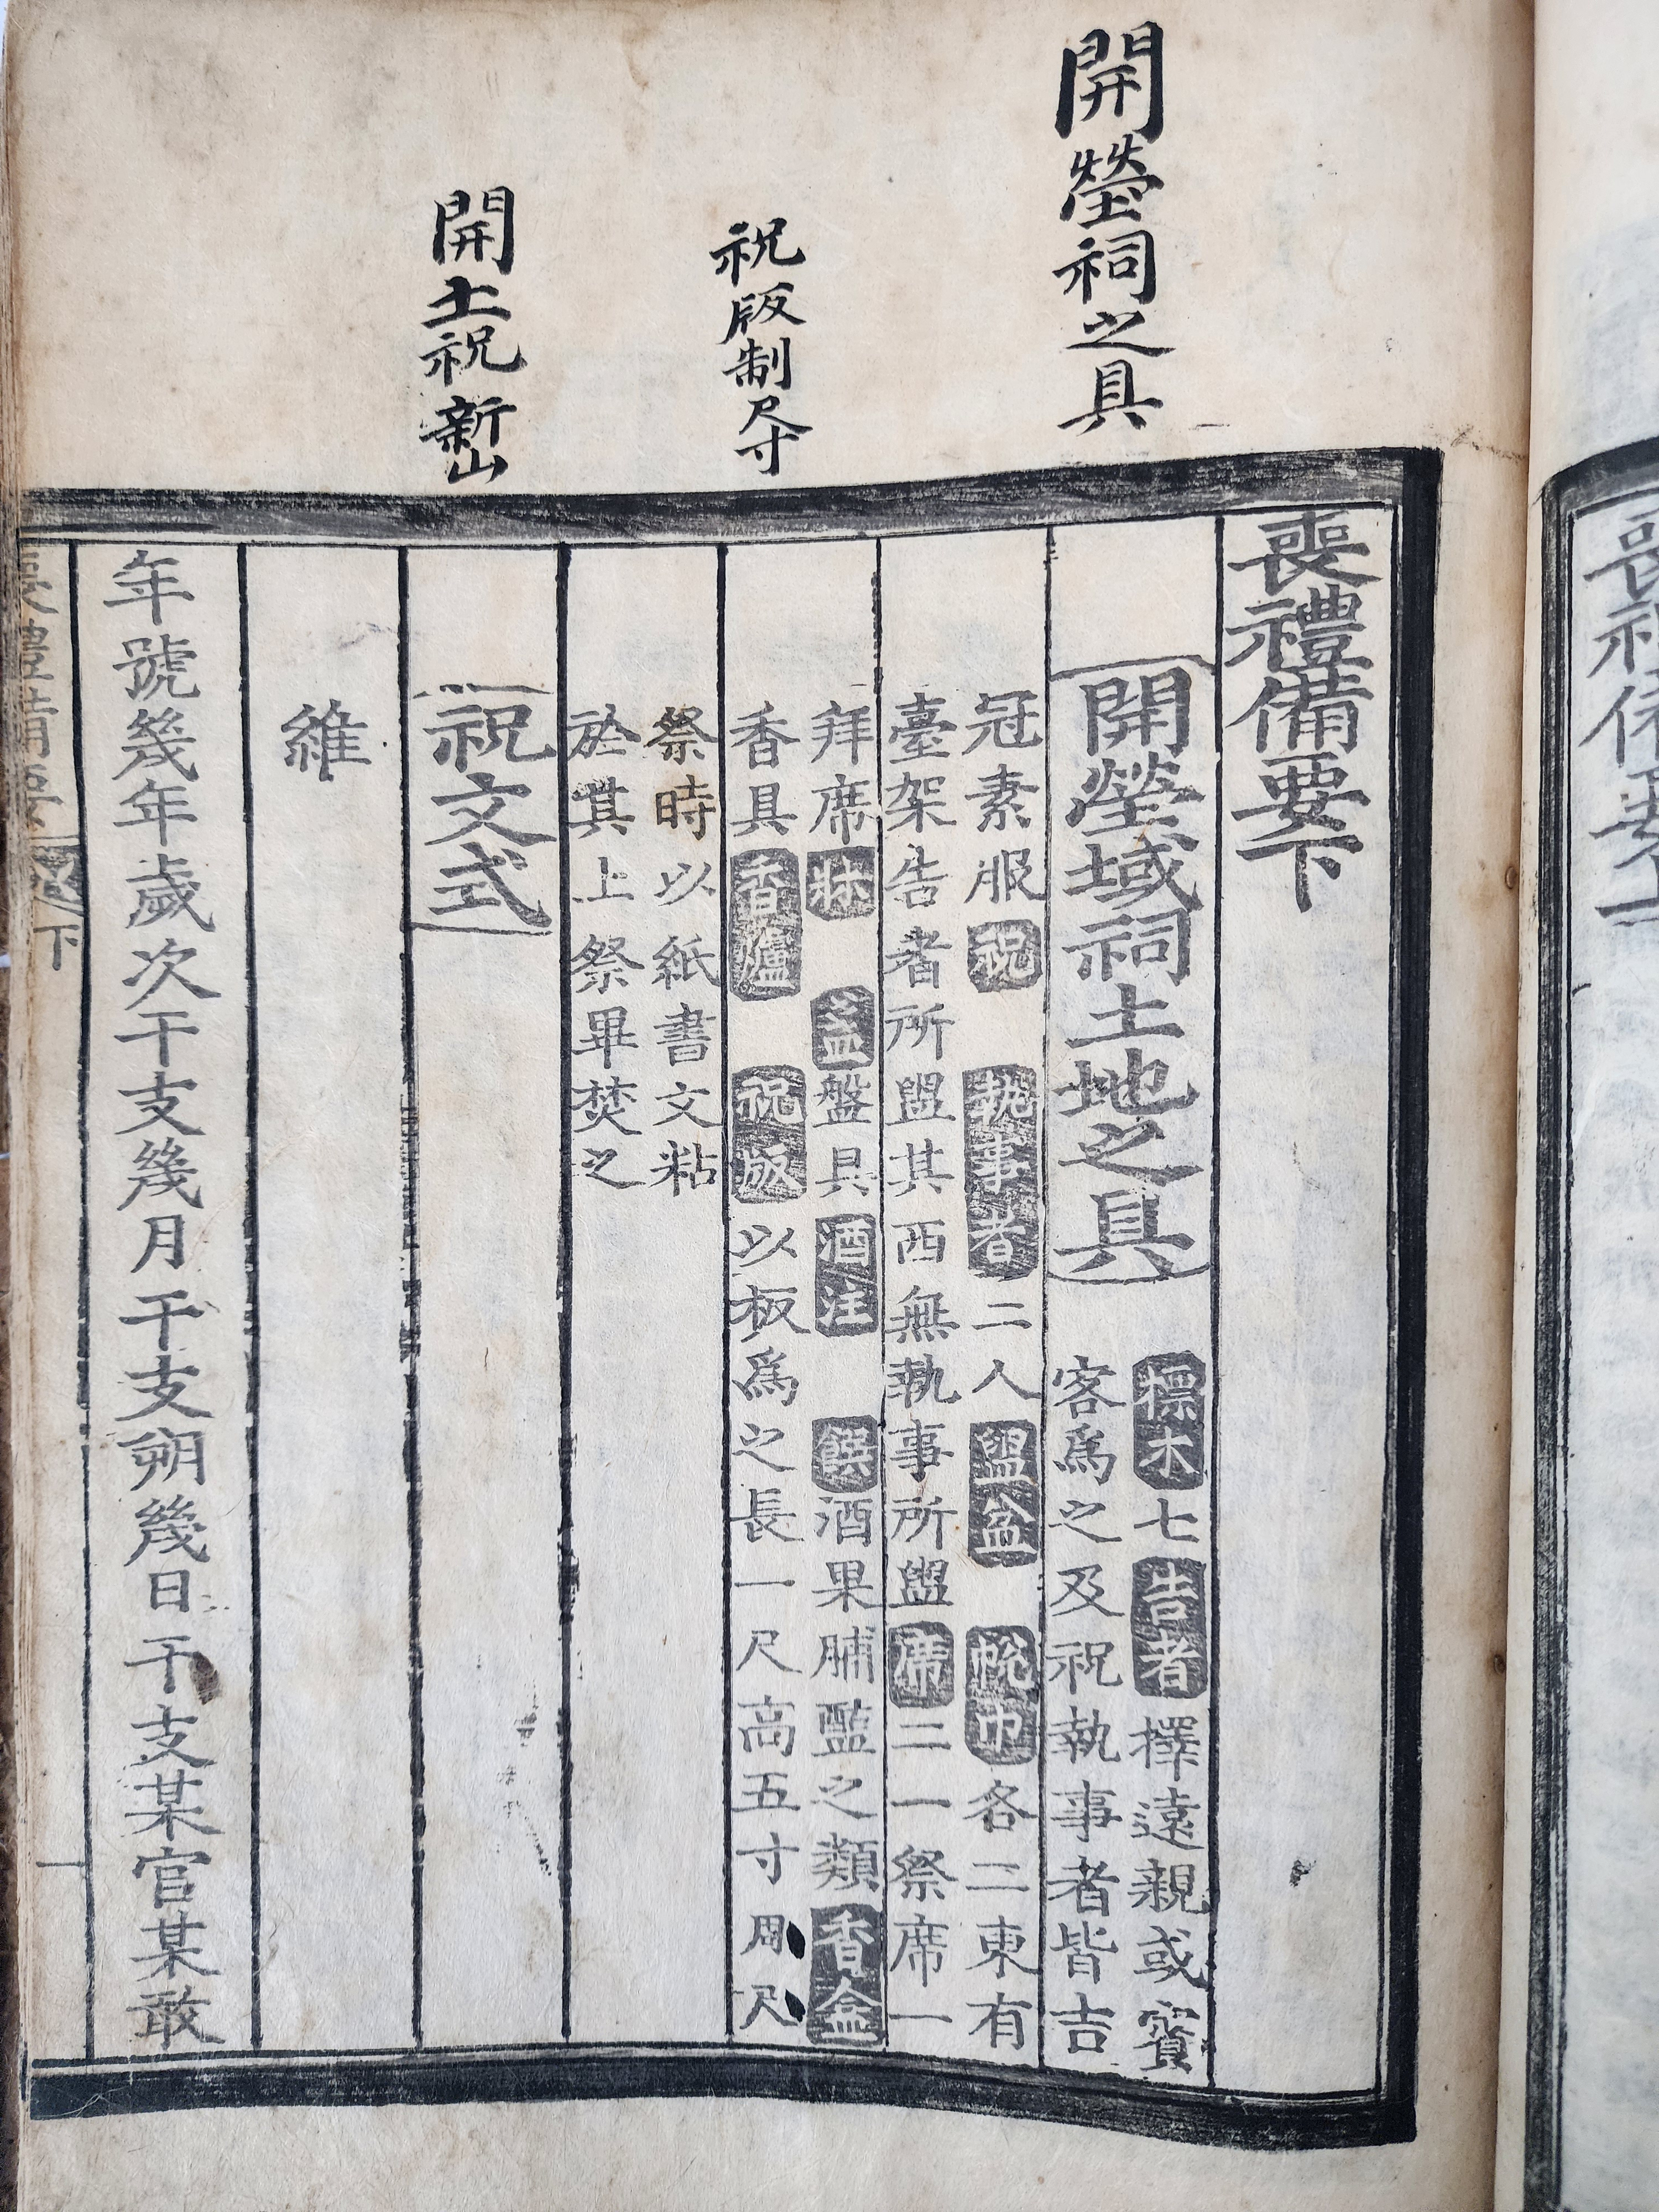 開塋祠之具
祝版制尺寸
開土祝 新山
喪禮備要下
開塋域祠土地之具
標木七告者擇遠親或賓
客爲之及祝執事者皆吉
冠素服祝 執事者二人盥盆 帨巾各二東有
臺架告者所盥其西無執事所盥席二一祭席一
拜席牀 盞盤具酒注 饌酒果脯醢之類香盒
香具香爐 祝版以板爲之長一尺高五寸周尺
祭時以紙書文粘
於其上祭畢焚之
祝文式
維
年號幾年歲次干支幾月干支朔幾日干支某官某敢
喪禮備要 下 一